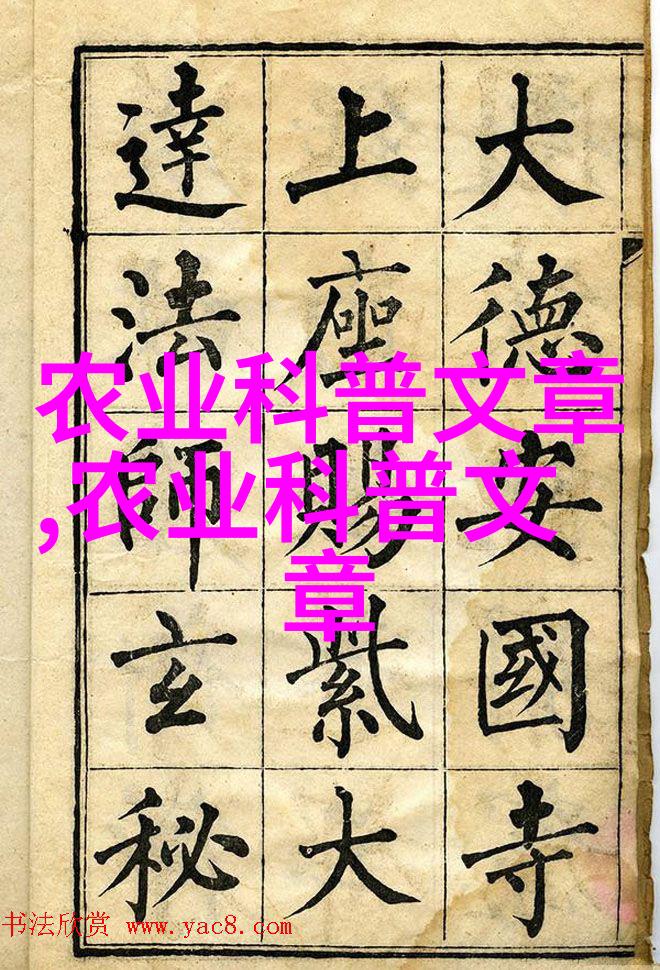 大德安國寺
上座賜紫大
達法師玄秘
农业科普文章
,农业科普文
章
书法欣赏 www.yac8.com